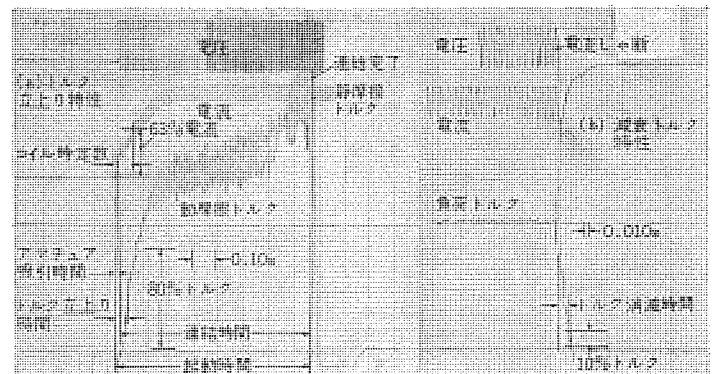 電圧
連結完了
静摩擦
トルク
(a)トルク
立上り特性
電流
63%電流
コイル時定数
動摩擦トルク
アマチュア
吸引時間
0.10s
80%トルク
トルク立上り
時間
連結時間
起動時間
電圧
電流しゃ断
電流
(b) 減衰トルク
特性
負荷トルク
0.010s
トルク消滅時間
10%トルク